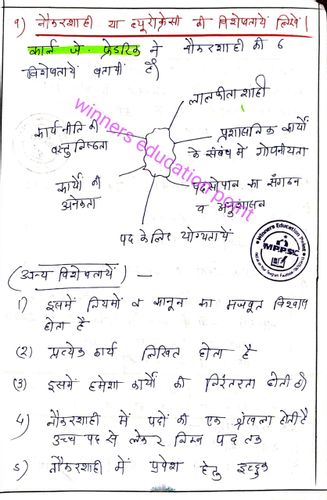 १) नौकरशाही या ब्यूरोक्रेसी की विशेषतायें लिखें।
कार्ल जे. फ्रेडरिक ने नौकरशाही की 6
विशेषतायें बतायी हैं)
लालफीताशाही
कार्यनीति की
वस्तुनिष्ठता
प्रशासनिक कार्यो
के संबंध में गोपनीयता
कार्यो की
अनेकता
पदसोपान का संगठन
व अनुशासन
पद के लिए योग्यतायें
winners education point
Winners Education Point
MPPSC
(अन्य विशेषतायें) —
1) इसमें नियमों व कानून का मजबूत विश्वास
होता है
(2) प्रत्येक कार्य लिखित होता है
(3) इसमें हमेशा कार्यो की निरंतरता होती है)
4) नौकरशाही में पदों की एक श्रंखला होती है
उच्च पद से लेकर निम्न पद तक
5) नौकरशाही में प्रवेश हेतु इच्छुक